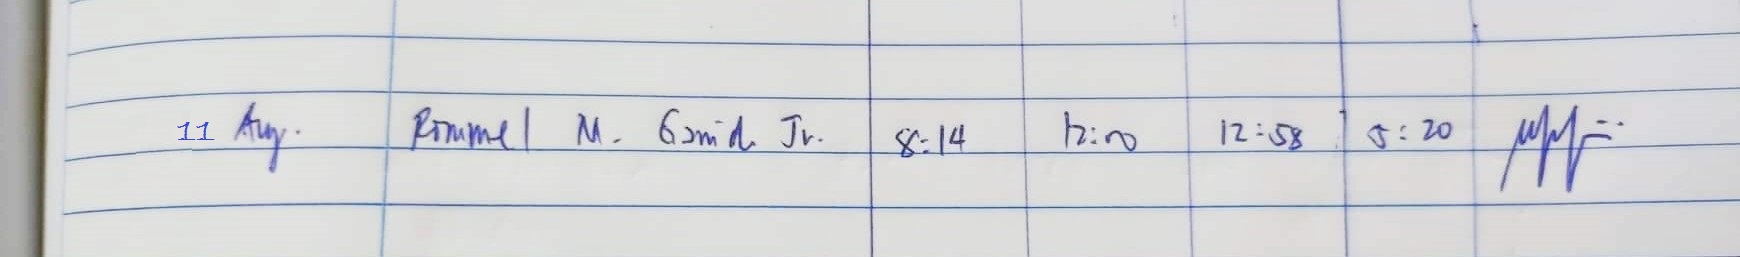 11 Aug. Rommel M. Gamid Jr. 8:14 12:00 12:58 5:20